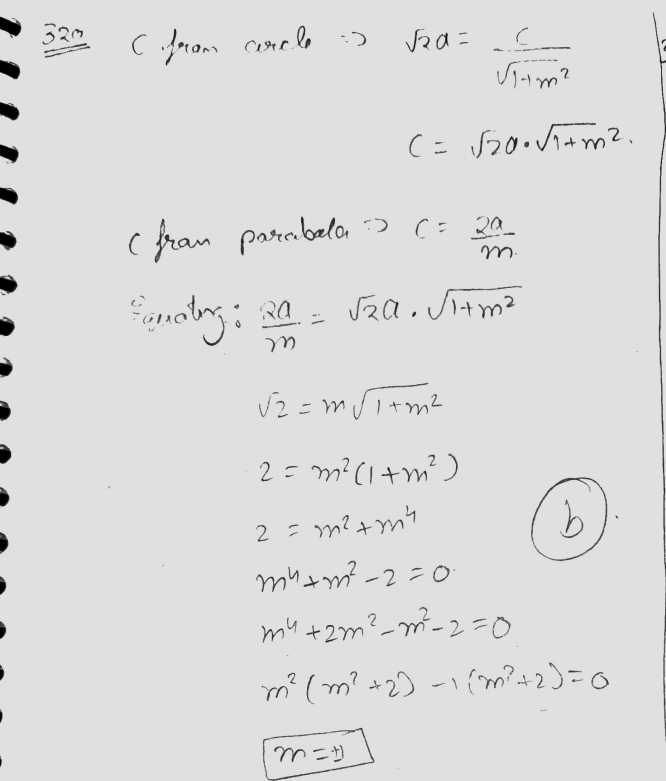 320 C from circle => √2a = c/√1+m²
C = √2a·√1+m².
C from parabola => C = 2a/m.
Equating: 2a/m = √2a. √1+m²
√2 = m√1+m²
2 = m²(1+m²)
2 = m²+m⁴
b
m⁴+m²-2=0
m⁴+2m²-m²-2=0
m²(m²+2)-1(m²+2)=0
m=±1